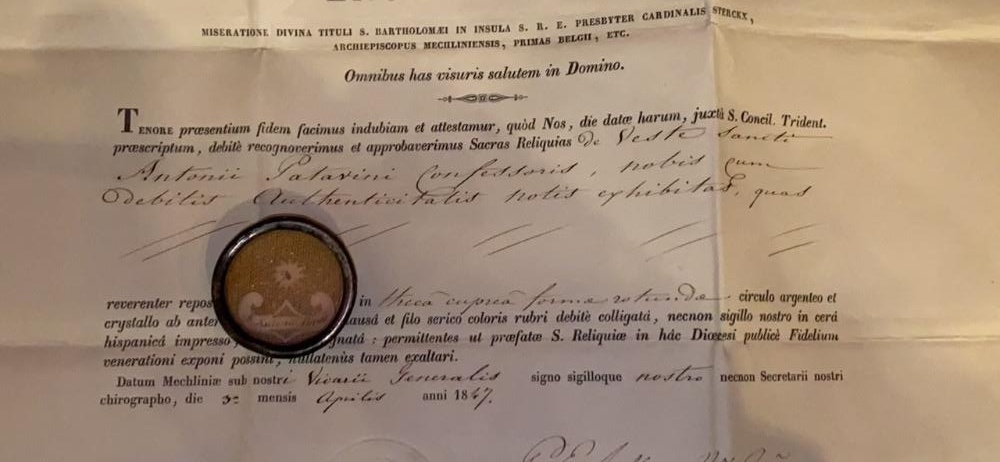 MISERATIONE DIVINA TITULI S. BARTHOLOMÆI IN INSULA S. R. E. PRESBYTER CARDINALIS STERCKX,
ARCHIEPISCOPUS MECHLINIENSIS, PRIMAS BELGII, ETC.
Omnibus has visuris salutem in Domino.
TENORE præsentium fidem facimus indubiam et attestamur, quòd Nos, die datæ harum, juxtà S. Concil. Trident.
præscriptum, debitè recognoverimus et approbaverimus Sacras Reliquias de Veste Sancti
Antonii Patavini Confessoris, nobis cum
debitis Authenticitatis notis exhibitas, quas
reverenter repos in thecâ cupreâ formæ rotundæ circulo argenteo et
crystallo ab anter ausâ et filo serico coloris rubri debitè colligatâ, necnon sigillo nostro in cerâ
hispanicâ impresso, gnatâ : permittentes ut præfatæ S. Reliquiæ in hâc Diœcesi publicè Fidelium
venerationi exponi possint, nullatenùs tamen exaltari.
Datum Mechliniæ sub nostri Vicarii Generalis signo sigilloque nostro necnon Secretarii nostri
chirographo, die mensis Aprilis anni 1847.